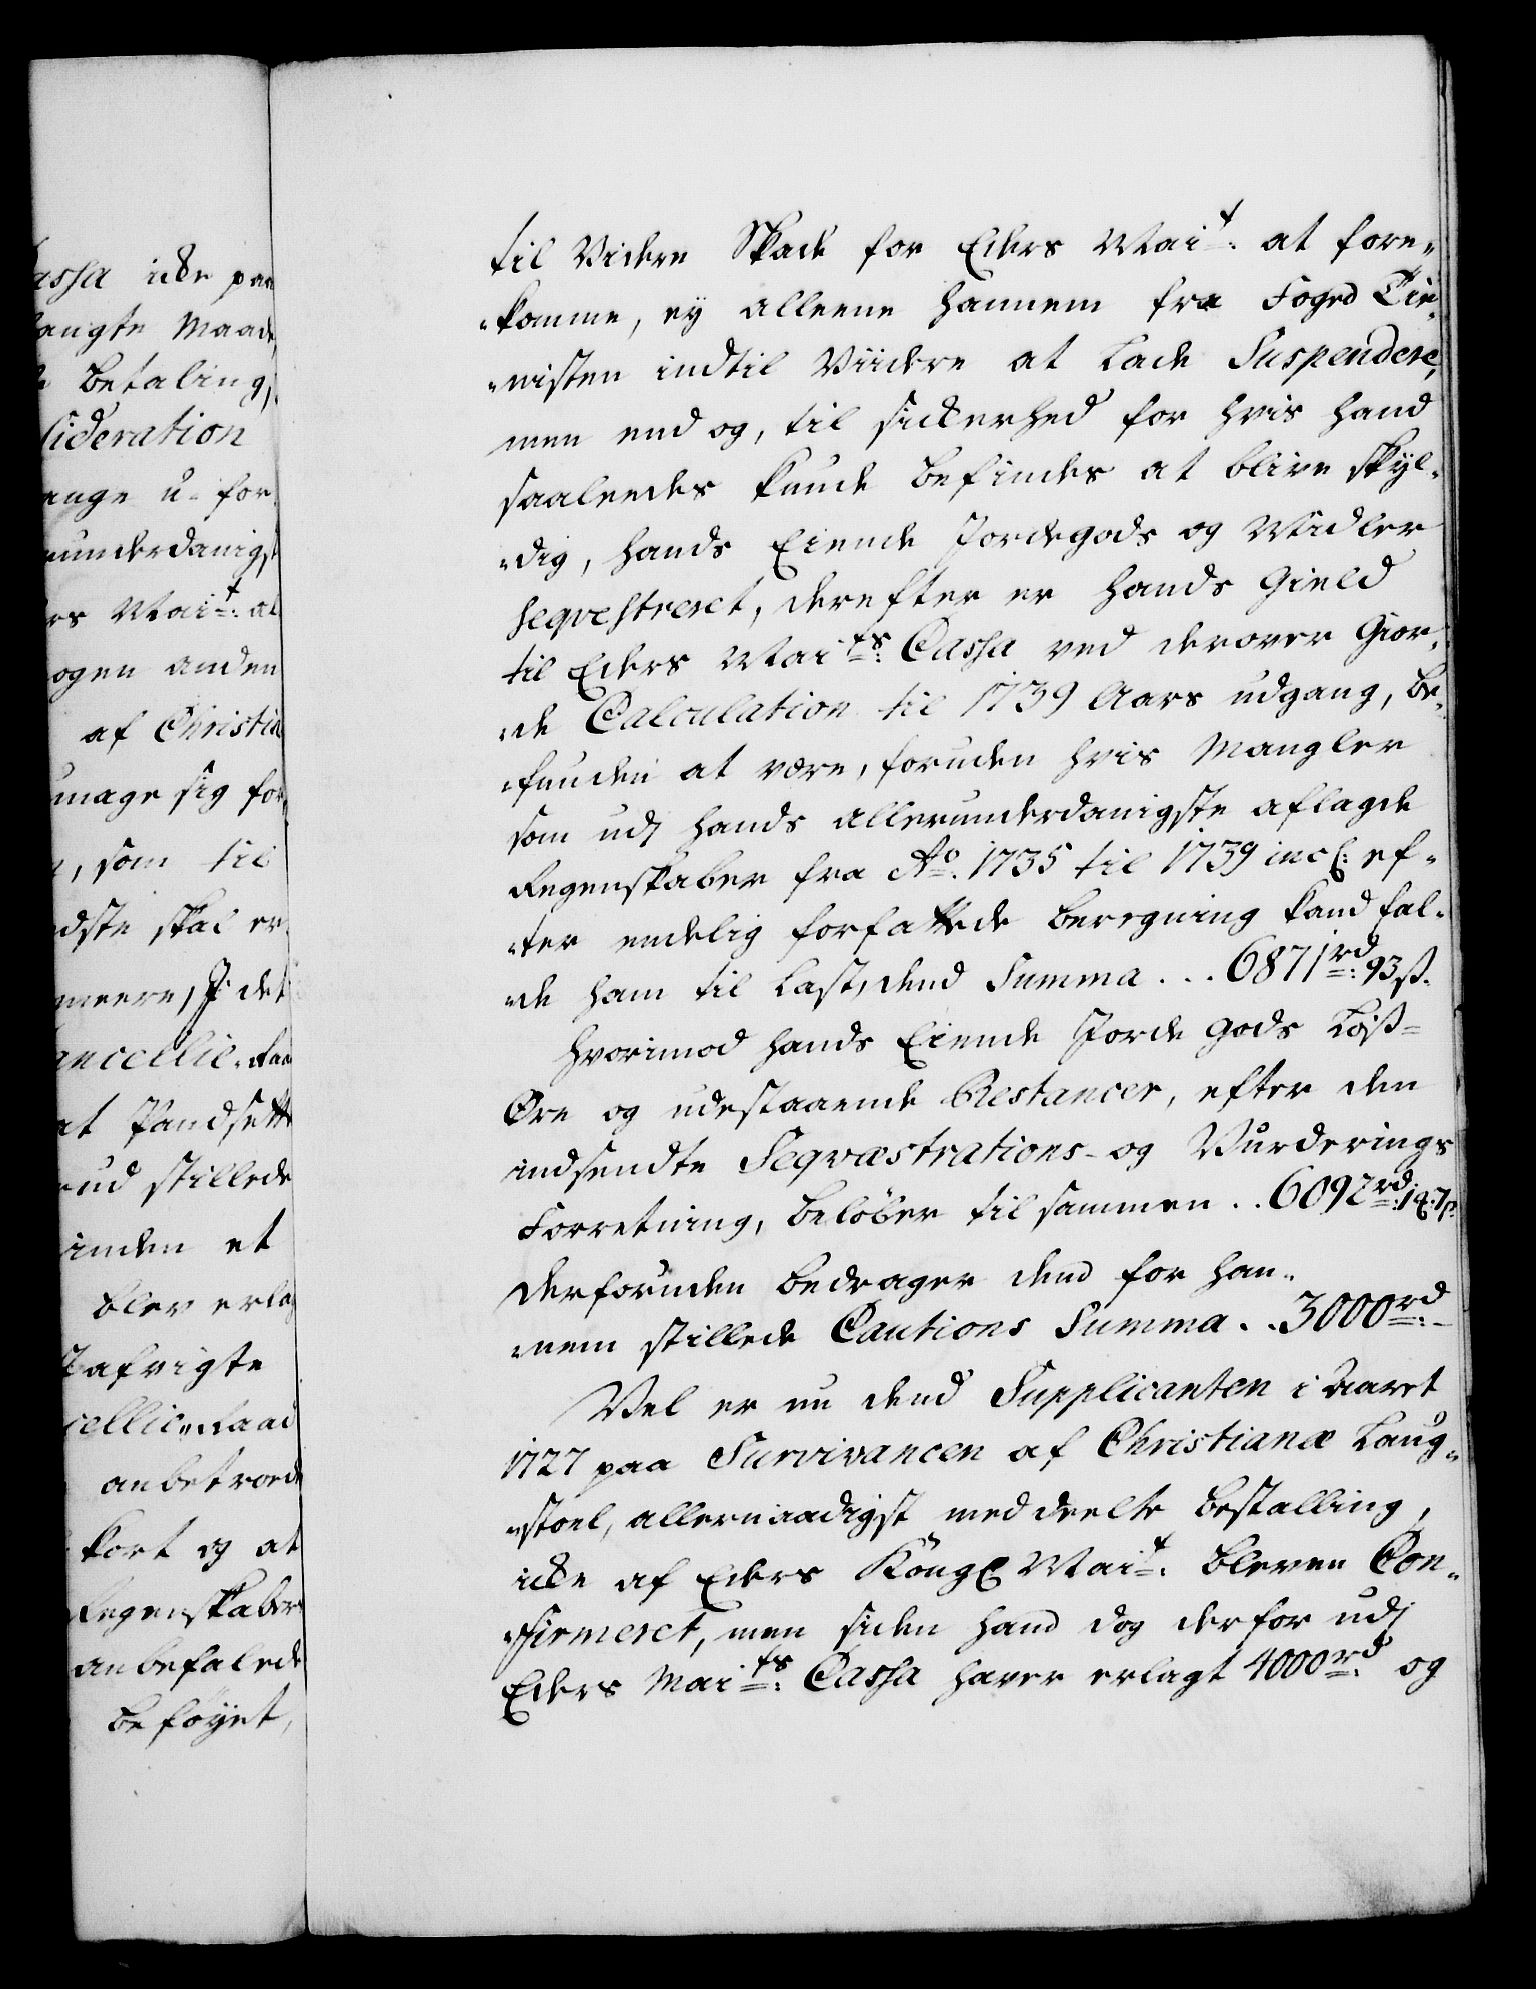 assa icke paa
langte Maade,
e Betaling,
sideration
enge u-for
runderdanigst
rs Mai.t: at
ogen anden
af Christia
umage sig for
, som til
edste skal er
meere, J det
ancellie-Raa
et Pandsette
rud stillede
inden et
blev erlag
afvigte
cellie-Raad
anbetroede
kort og at
Regenskaber
anbefalede
beføyet,
til Videre Skade for Eders Mai.t: at fore-
-komme, ey alleene hannem fra Foged Tie-
-nisten indtil Viidere at lade Suspendere,
men end og, til sickerhed for hvis hand
saaleedes kunde befindes at blive skyl-
-dig, hands Eiende Jordegods og Midler
seqvestreret, derefter er hands Gield
til Eders Mai.ts: Cassa ved derover Gior-
-de Calculation til 1739 Aars udgang, be-
-funden at være, foruden hvis Mangler
som udj hands allerunderdanigste aflagde
Regenskaber fra Ao. 1735 til 1739 incl: ef-
-ter endelig forfattede beregning kand fal-
-de ham til Last, dend Summa ... 6871rd: 93ß.
hvorimod hands Eiende Jorde Gods Løß-
Øre og udestaaende Restancer, efter den
indsendte Seqvæstrations- og Vurderings
Forretning, beløber til sammen .. 6092rd: 1 7ß.
derforuden bedrager dend for han-
-nem stillede Cautions Summa .. 3000rd:-
Vel er nu dend Supplicanten i Aaret
1727 paa Survivancen af Christianæ Laug-
-stoel, allernaadigst meddeelte bestalling,
icke af Eders Kongl Mai.t: bleven Con-
-firmeret, men siden hand dog derfor udj
Eders Mai.ts: Cassa haver erlagt 4000rd: og